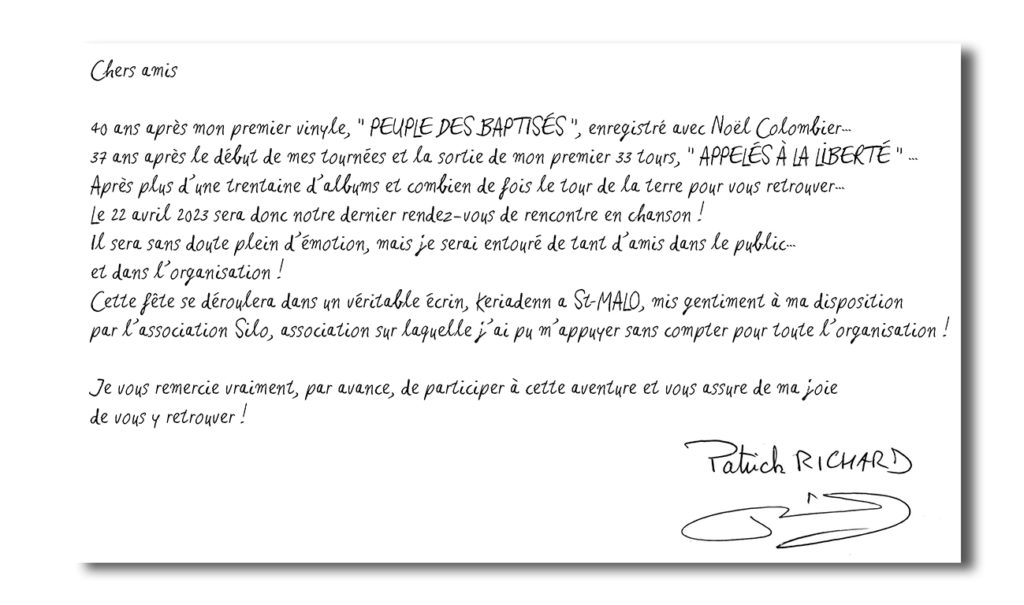 Chers amis
40 ans après mon premier vinyle, " PEUPLE DES BAPTISÉS ", enregistré avec Noël Colombier...
37 ans après le début de mes tournées et la sortie de mon premier 33 tours, " APPELÉS À LA LIBERTÉ " ...
Après plus d'une trentaine d'albums et combien de fois le tour de la terre pour vous retrouver...
Le 22 avril 2023 sera donc notre dernier rendez-vous de rencontre en chanson !
Il sera sans doute plein d'émotion, mais je serai entouré de tant d'amis dans le public...
et dans l'organisation !
Cette fête se déroulera dans un véritable écrin, Keriadenn a St-MALO, mis gentiment à ma disposition
par l'association Silo, association sur laquelle j'ai pu m'appuyer sans compter pour toute l'organisation !
Je vous remercie vraiment, par avance, de participer à cette aventure et vous assure de ma joie
de vous y retrouver !
Patrick RICHARD